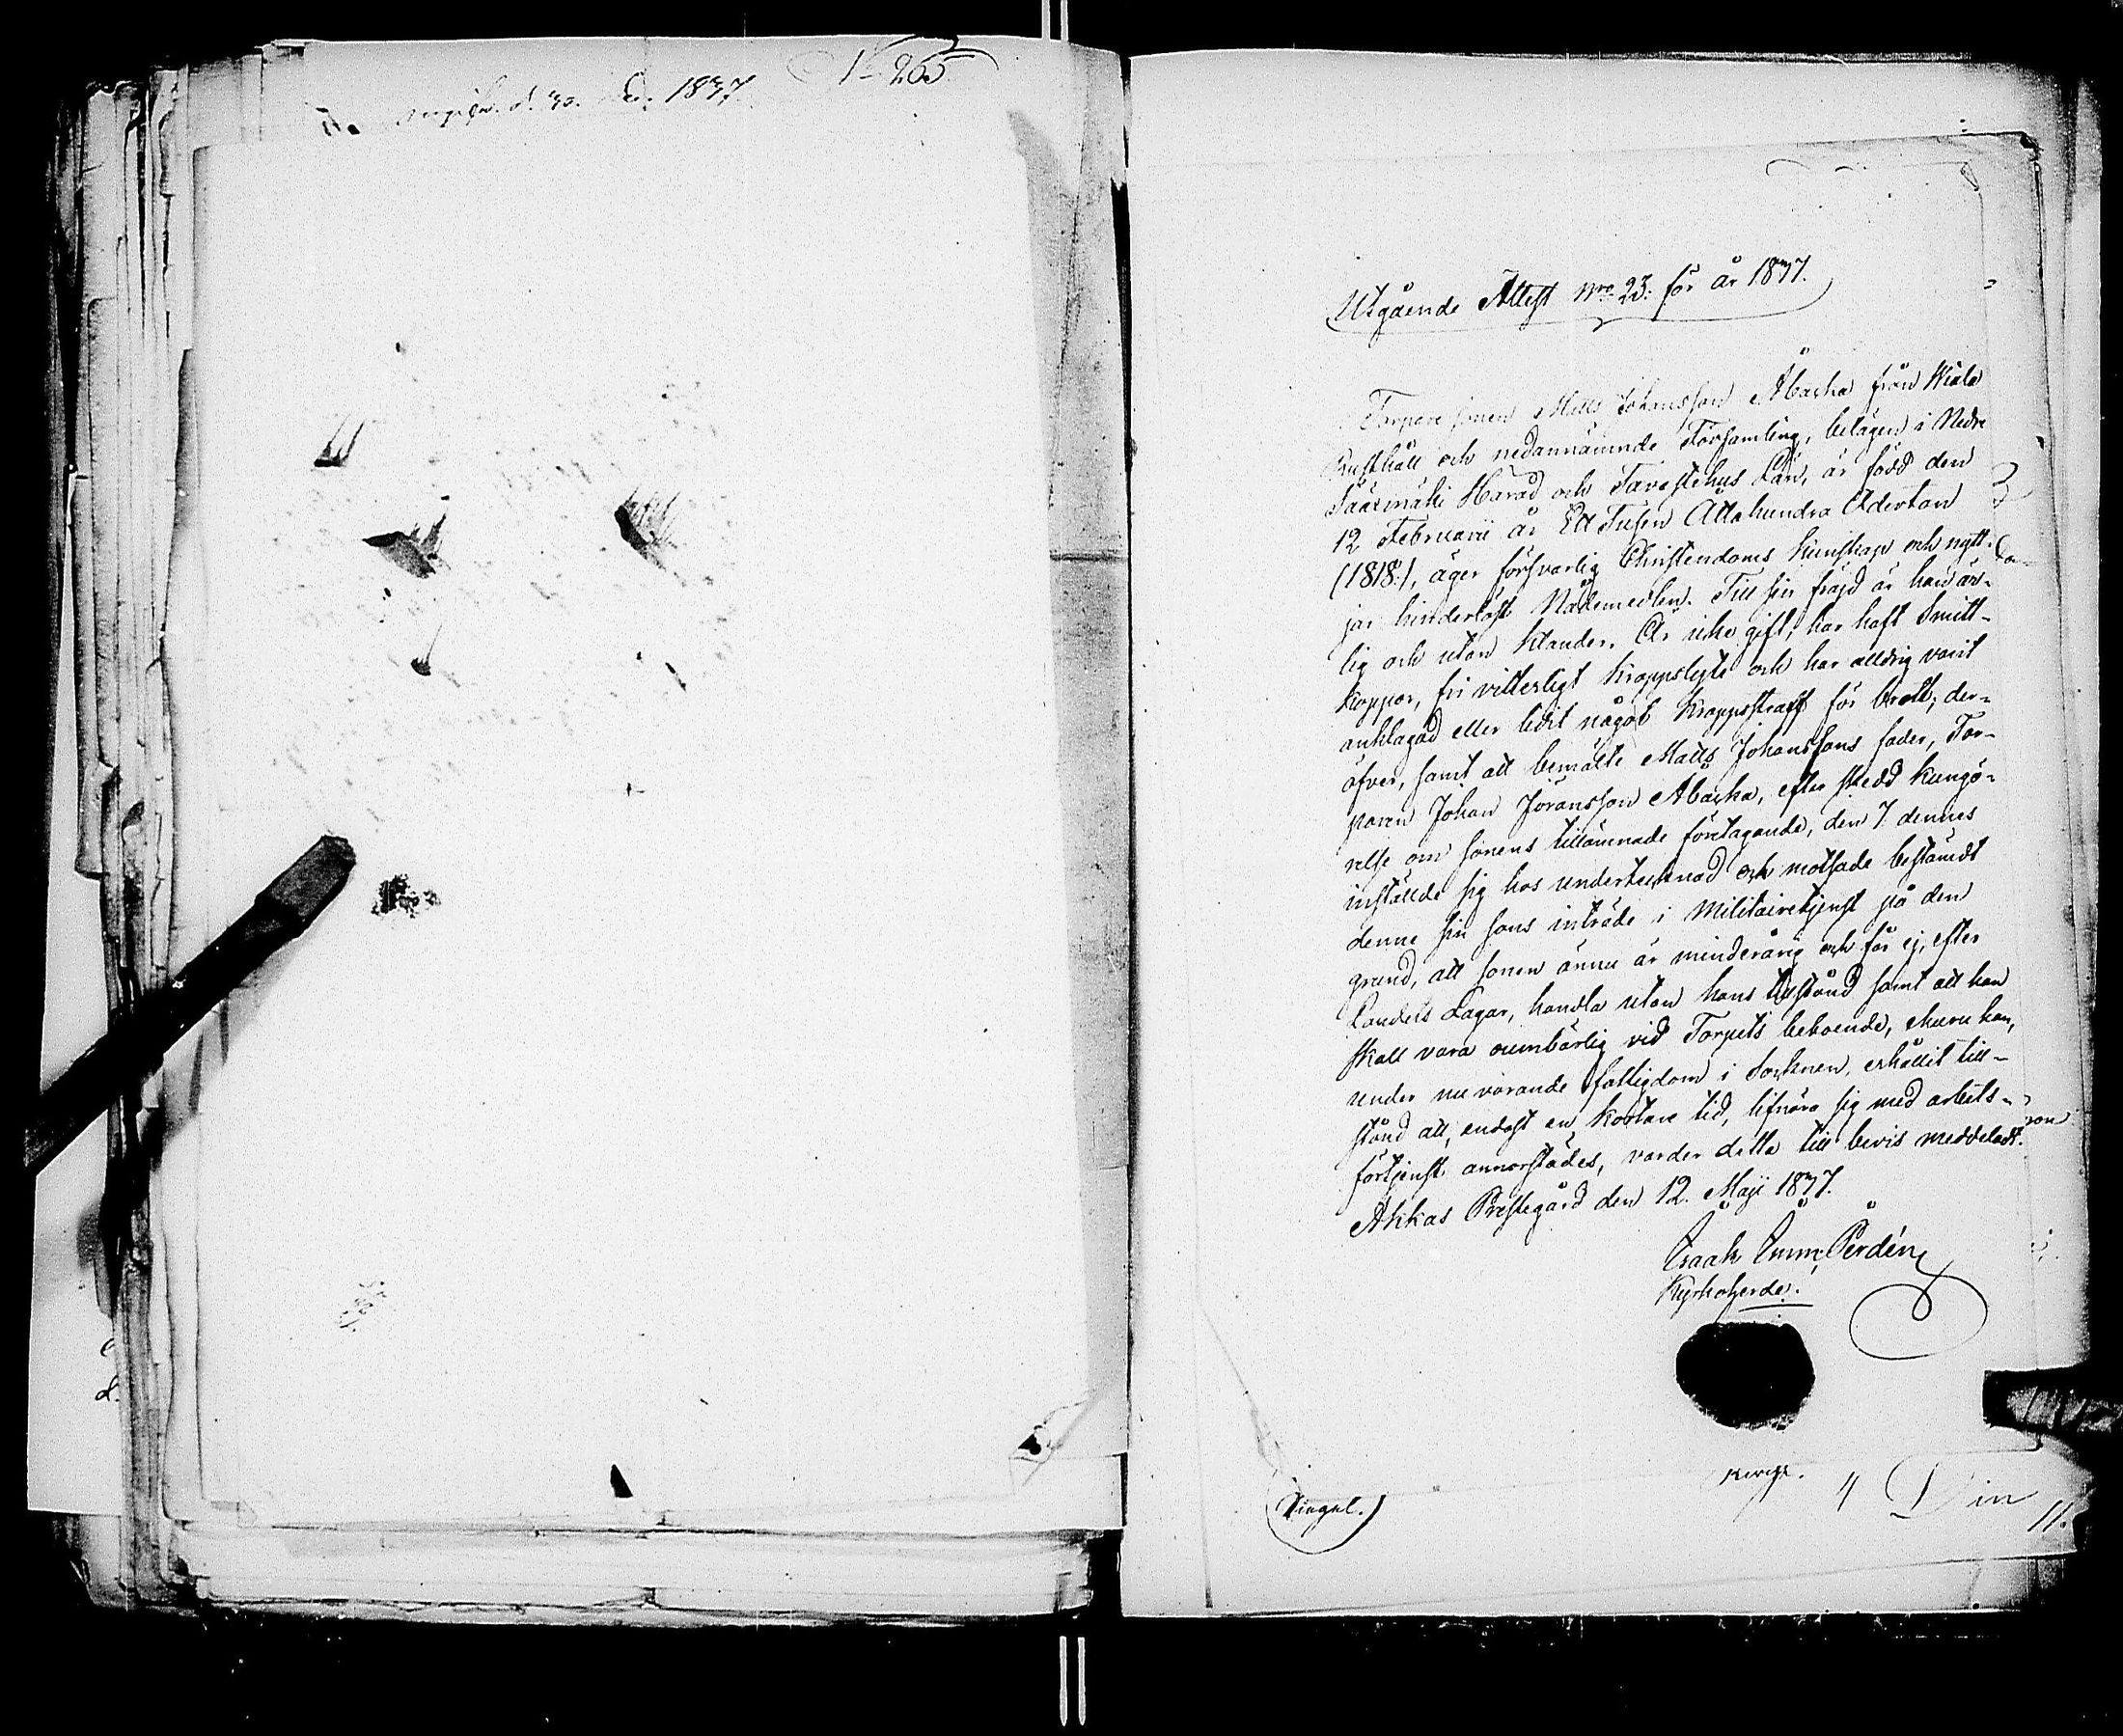 d. 30. 1837
1-265
Utgående Attest Nro 23. för år 1837.
Torparesonen Matts Johansson Åbacka från Wiala
Rusthåll och nedannämnde Församling, belägen i Nedre
Sääxmäki Härad och Tavastehus Län, är född den
12 Februarii år Ett Tusen Åttahundra Aderton
(1818:), äger försvarlig Christendoms kunskap och nytt-
jar hinderlöst Nådemedlen. Till sin fräjd är han är-
lig och utan klander. Är icke gift, har haft Smitt-
koppor, fri vitterligt kroppslyte och har alldrig varit
anklagad eller lidit något kroppsstraff för brott; der-
öfver, samt att bemälte Matts Johanssons fader, Tor-
paren Johan Jöransson Åbacka, efter skedd kungö-
relse om sonens tillämnade företagande, den 7 dennes
inställde sig hos undertecknad och motsade bestämdt
denne sin sons inträde i Militairetjenst på den
grund, att sonen ännu är minderårig och får ej, efter
Landets Lagar, handla utan hans tillstånd samt att han
skall vara oumbärlig vid Torpets beboende, ehuru han,
under nu varande fattigdom i Socknen, erhållit till-
stånd att, endast en kortare tid, lifnära sig med arbets-
förtjenst annorstädes, varder detta till bevis meddeladt.
Akkas Prestegård den 12. Maji 1837.
Isaak Imm. Perdén
Kyrkoherde.
(Sigul.)
11.